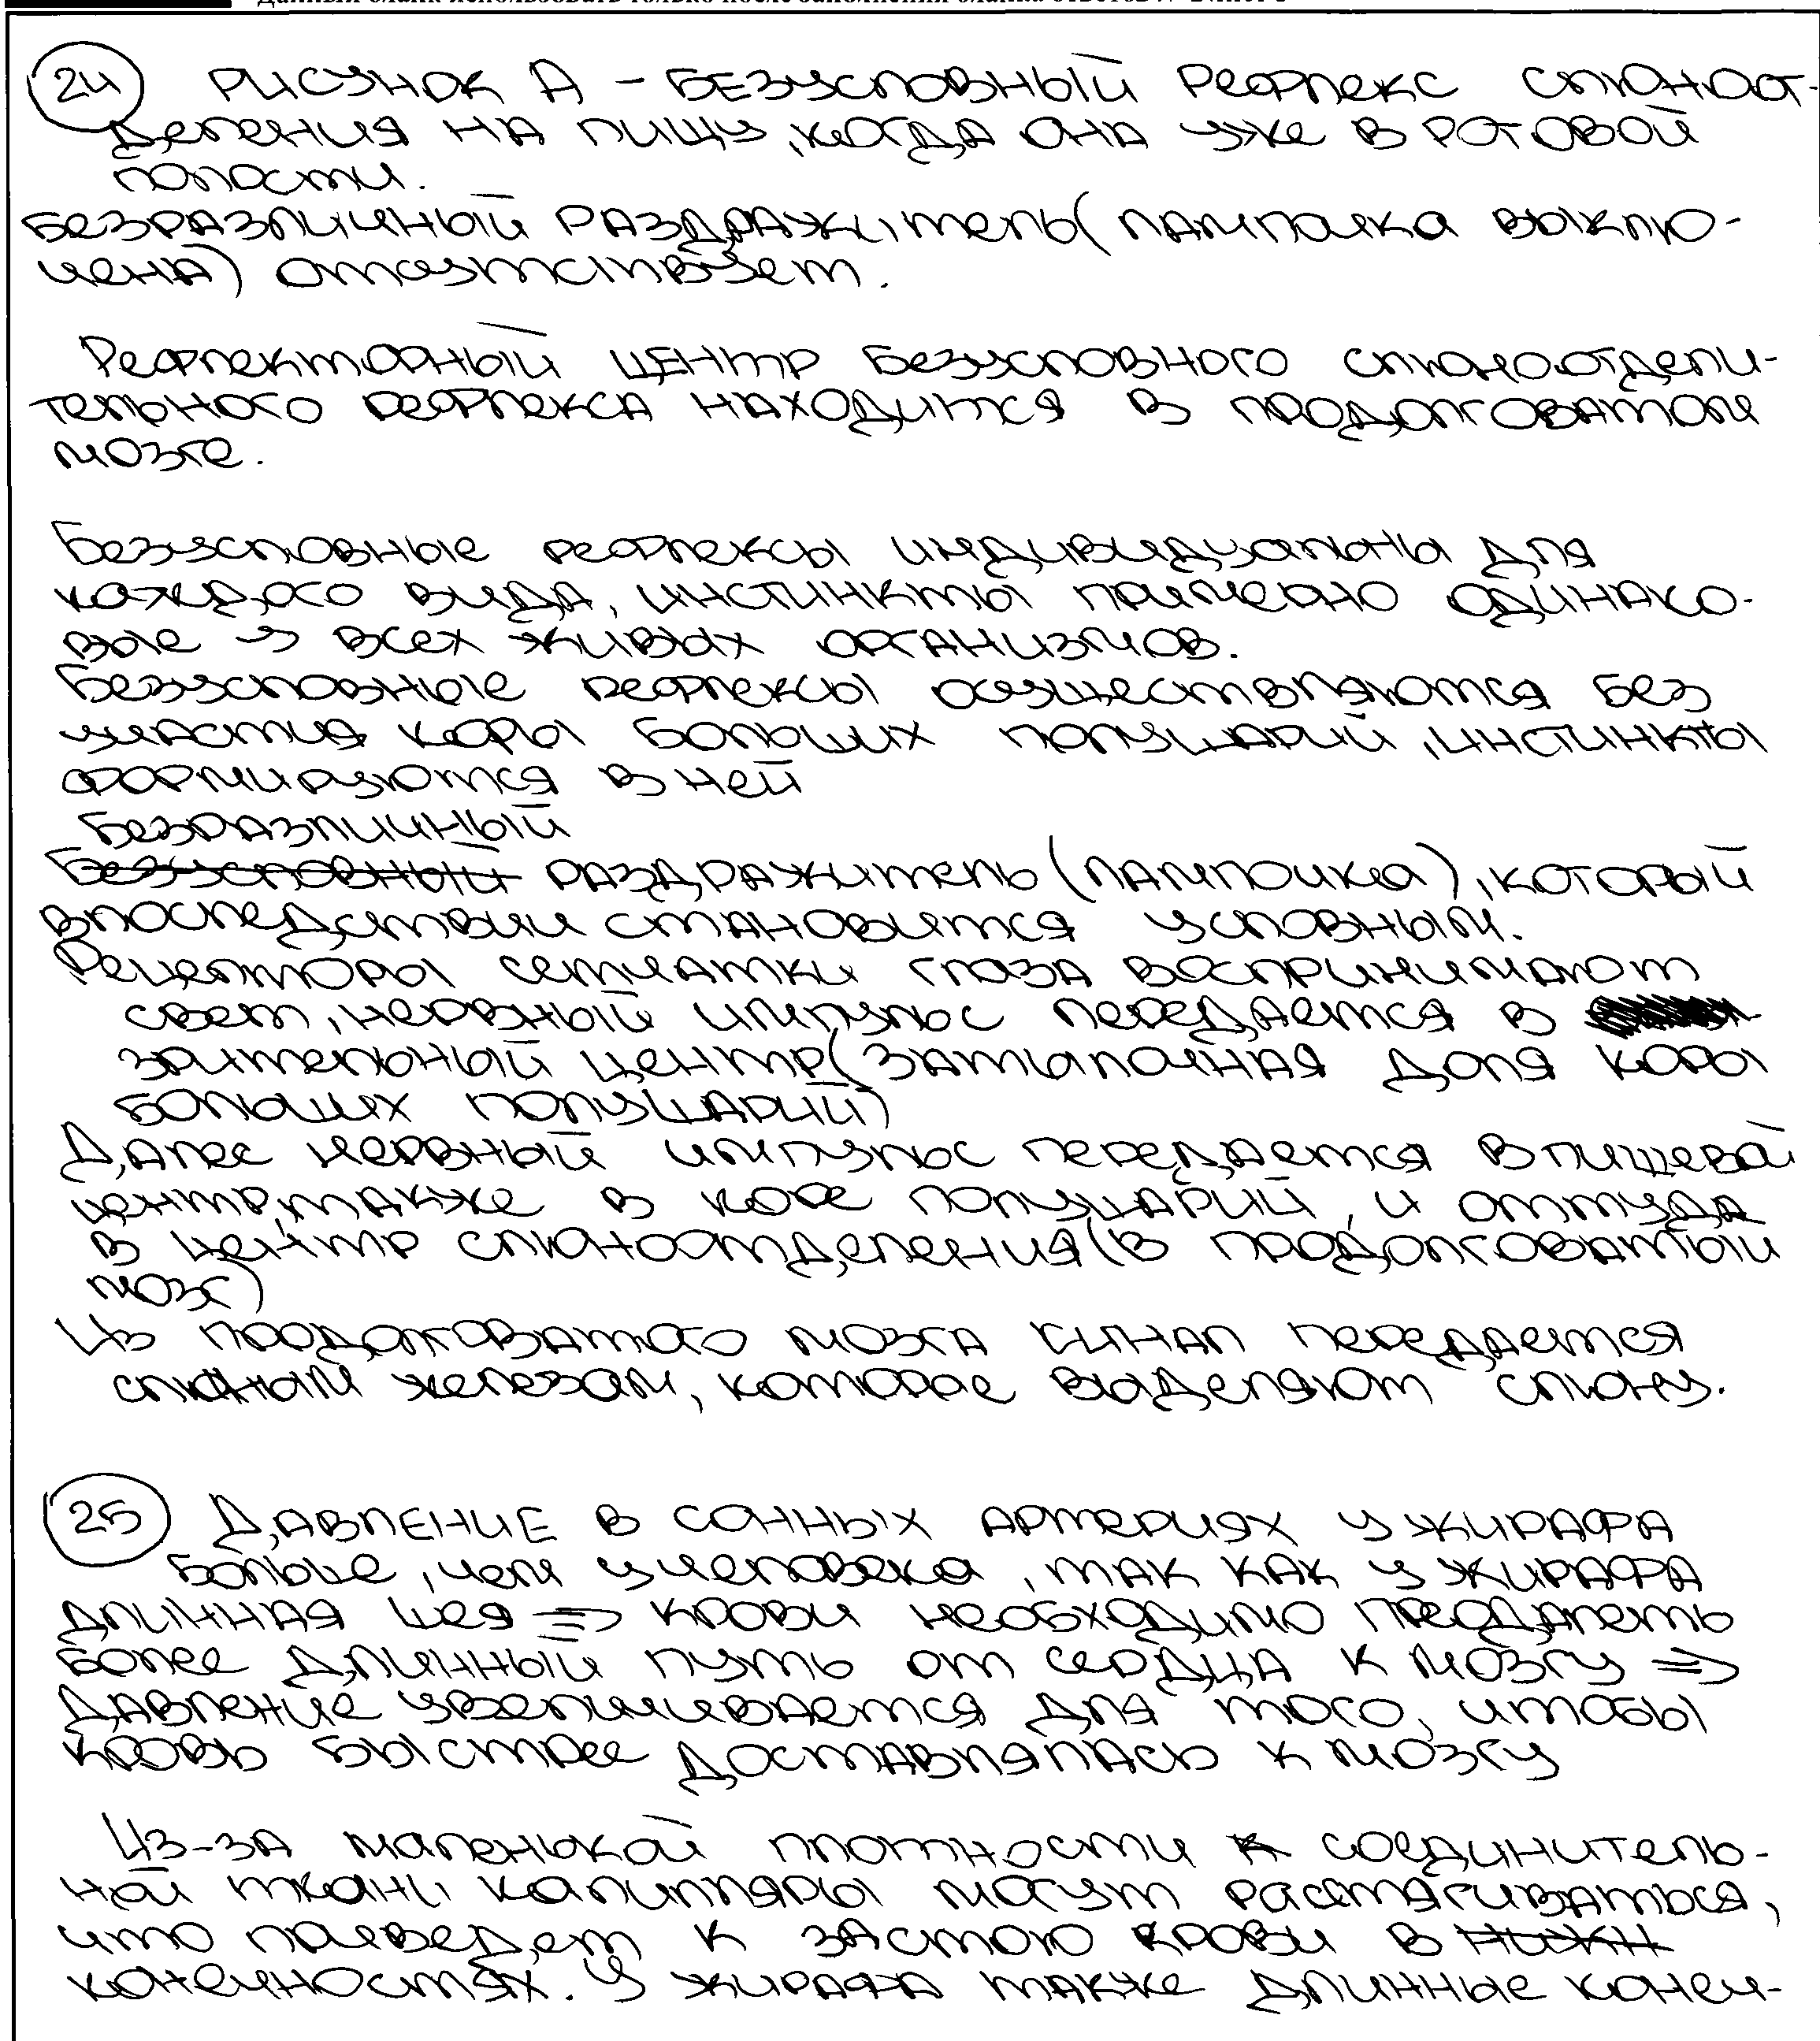 24 РИСУНОК А – БЕЗУСЛОВНЫЙ РЕФЛЕКС СЛЮНООТ-
ДЕЛЕНИЯ НА ПИЩУ, КОГДА ОНА УЖЕ В РОТОВОЙ
ПОЛОСТИ.
БЕЗРАЗЛИЧНЫЙ РАЗДРАЖИТЕЛЬ (ЛАМПОЧКА ВЫКЛЮ-
ЧЕНА) ОТСУТСТВУЕТ.
Рефлекторный центр безусловного слюноотдели-
тельного рефлекса находится в продолговатом
мозге.
Безусловные рефлексы индивидуальны для
каждого вида, инстинкты примерно одинако-
вые у всех живых организмов.
Безусловные рефлексы осуществляются без
участия коры больших полушарий, инстинкты
формируются в ней
Безразличный
Безусловный раздражитель (лампочка), который
впоследствии становится условным.
Рецепторы сетчатки глаза воспринимают
свет, нервный импульс передается в
зрительный центр (затылочная доля коры
больших полушарий)
Далее нервный импульс передается в пищевой
центр, также в коре полушарий, и оттуда
в центр слюноотделения (в продолговатый
мозг)
Из продолговатого мозга сигнал передается
слюным железам, которое выделяют слюну.
25 Давление в сонных артериях у жирафа
больше, чем у человека, так как у жирафа
длинная шея => крови необходимо преодалеть
более длинный путь от сердца к мозгу =>
давление увеличивается для того, чтобы
кровь быстрее доставлялась к мозгу
Из-за маленькой плотности к соединитель-
ной ткани капилляры могут растягиваться,
что приведет к застою крови в нижн
конечностях. У жирафа также длинные конеч-